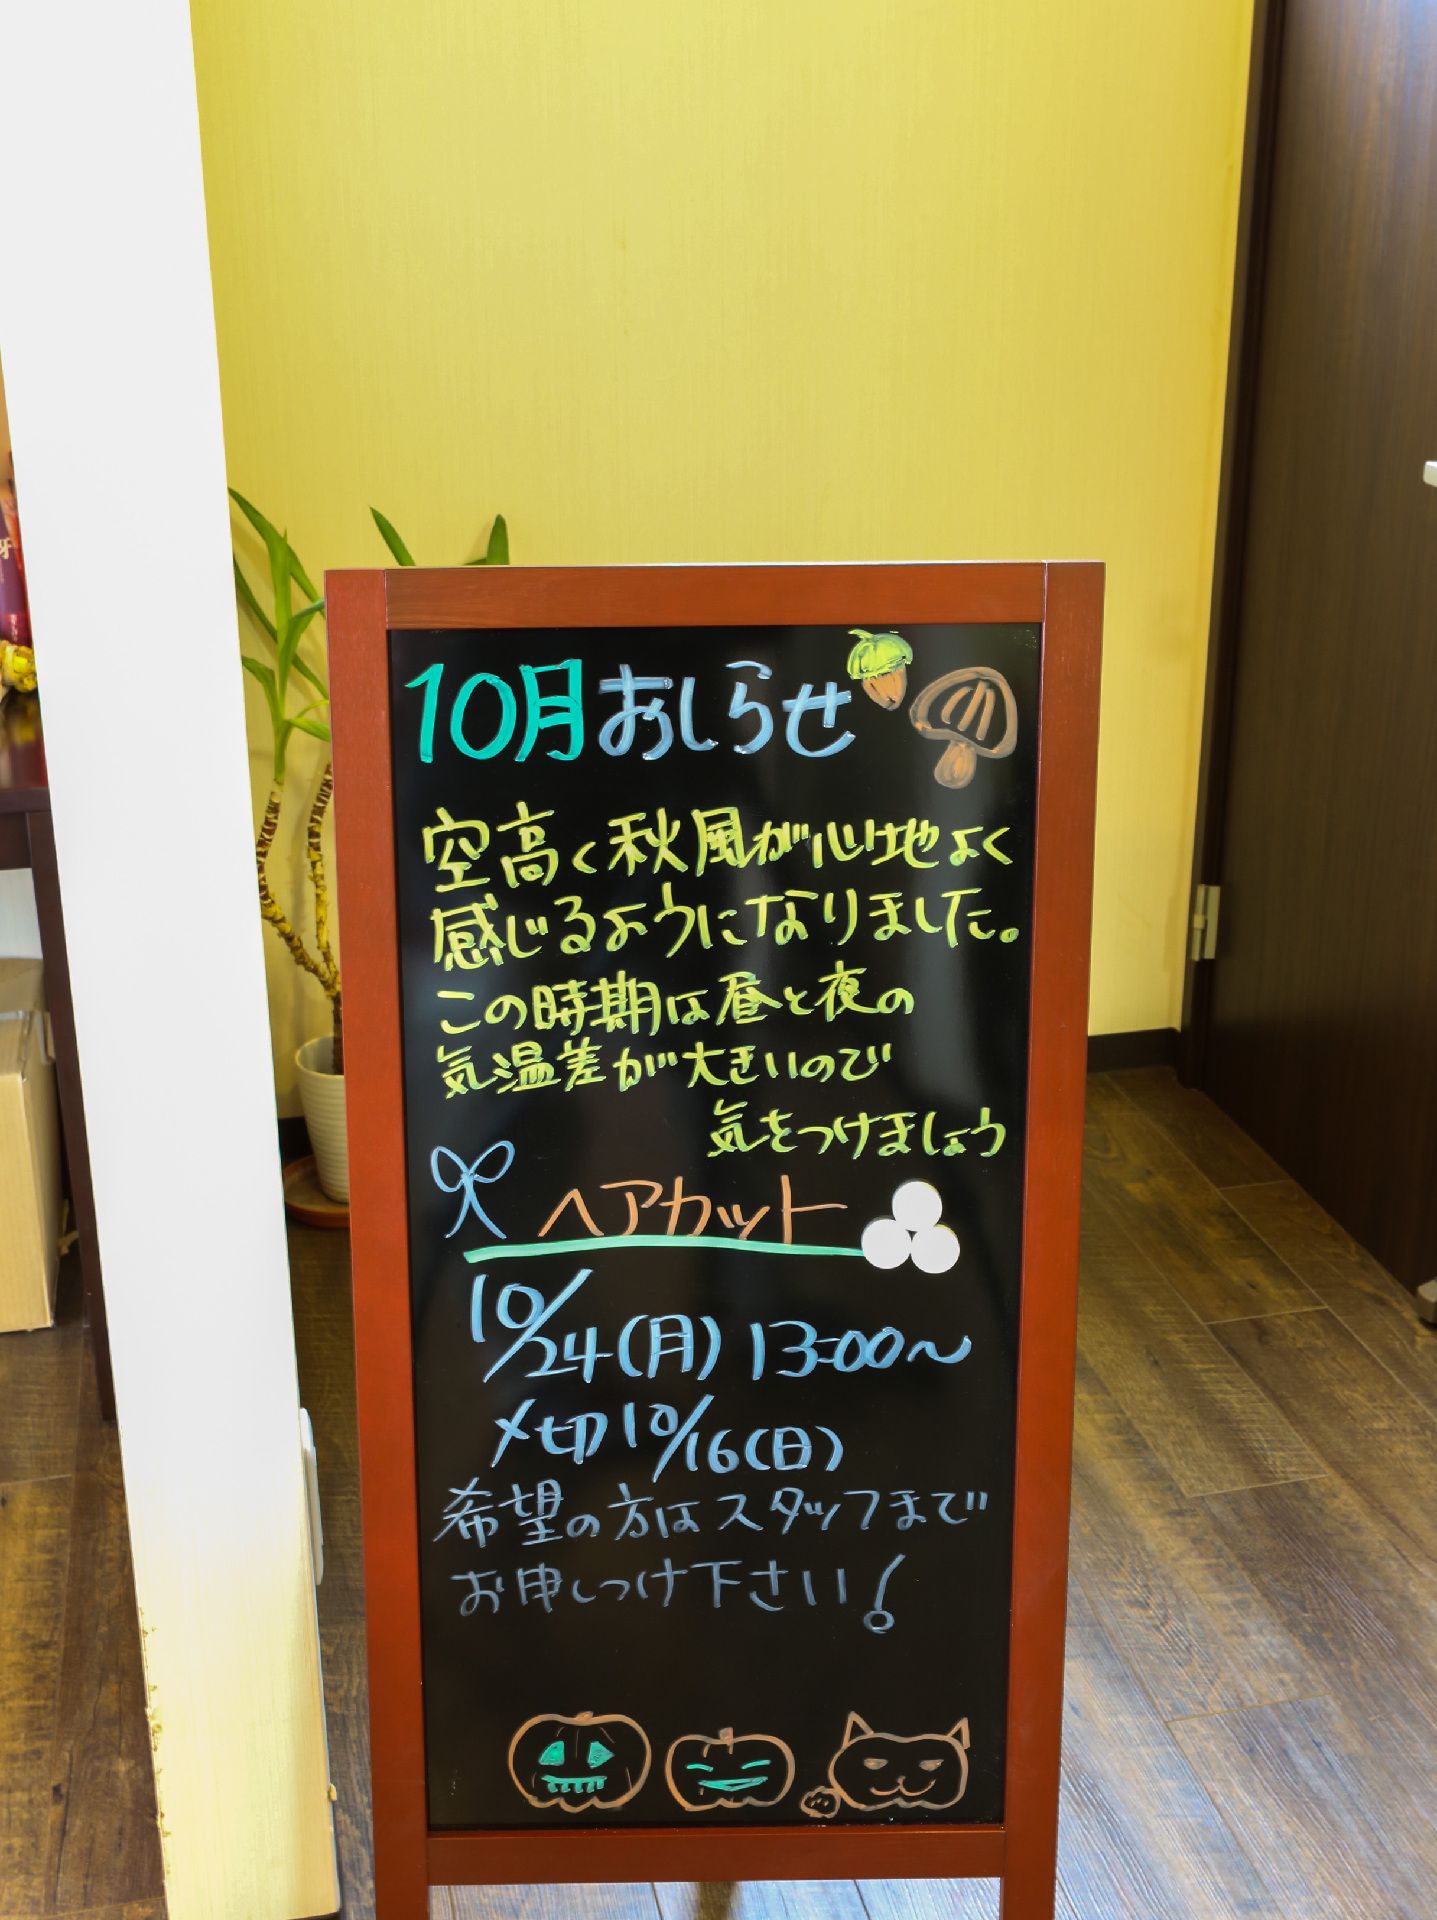 10月おしらせ
空高く秋風が心地よく
感じるようになりました。
この時期は昼と夜の
気温差が大きいので
気をつけましょう
ヘアカット
10/24(月) 13:00〜
〆切10/16(日)
希望の方はスタッフまで
お申しつけ下さい!